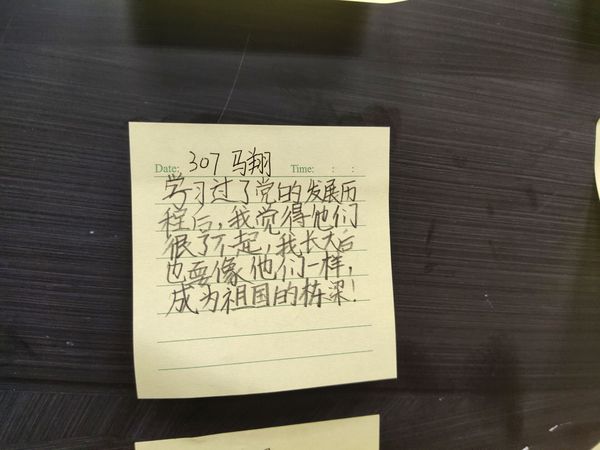 Date: 307 马翔 Time: : :
学习过了党的发展历
程后，我觉得他们
很了不起，我长大后
也要像他们一样，
成为祖国的栋梁！